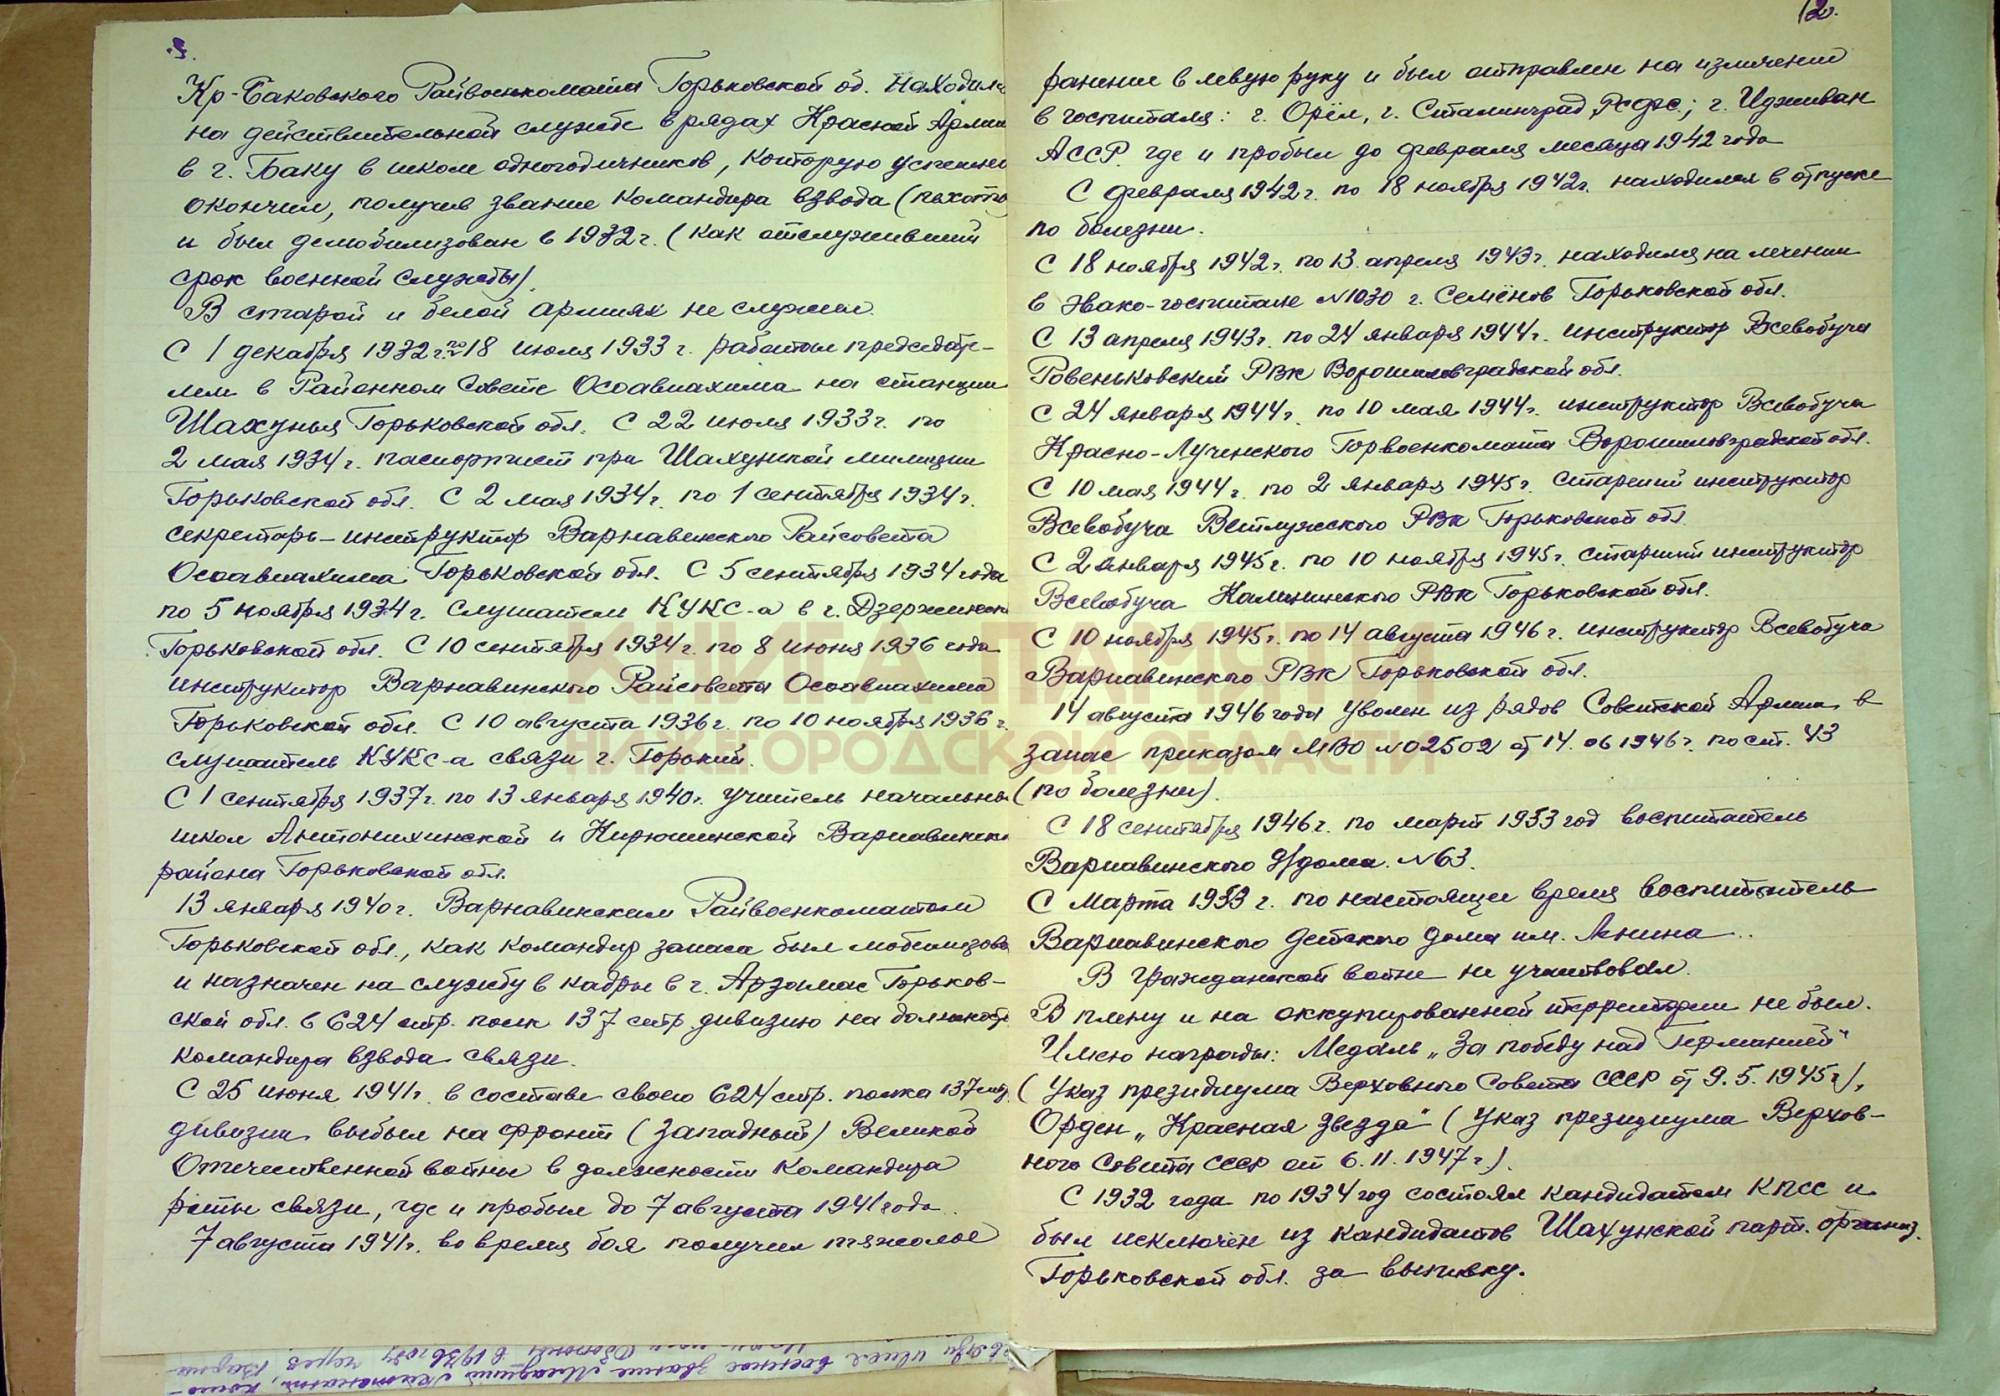 3.
Кр-Баковского Райвоенкомата Горьковской об. Находилс
на действительной службе в рядах Красной Армии
в г. Баку в школе одногодичников, которую успешно
окончил, получив звание командира взвода (пехоты)
и был демобилизован в 1932 г. (как отслуживший
срок военной службы).
В старой и белой армиях не служил.
С 1 декабря 1932 г. по 18 июля 1933 г. работал председате-
лем в Районном Совете Осоавиахима на станции
Шахунья Горьковской обл. С 22 июля 1933 г. по
2 мая 1934 г. паспортист при Шахунской милиции
Горьковской обл. С 2 мая 1934 г. по 1 сентября 1934 г.
секретарь-инструктор Варнавинского Райсовета
Осоавиахима Горьковской обл. С 5 сентября 1934 года
по 5 ноября 1934 г. слушателем КУКС-а в г. Дзержинске
Горьковской обл. С 10 сентября 1934 г. по 8 июня 1936 года
инструктор Варнавинского Райсовета Осоавиахима
Горьковской обл. С 10 августа 1936 г. по 10 ноября 1936 г.
слушатель КУКС-а связи г. Горький.
С 1 сентября 1937 г. по 13 января 1940 г. учитель начальны
школ Антонихинской и Кирюшинской Варнавинско
района Горьковской обл.
13 января 1940 г. Варнавинским Райвоенкоматом
Горьковской обл., как командир запаса был мобилизова
и назначен на службу в кадры в г. Арзамас Горьков-
ской обл. в 624 стр. полк 137 стр дивизию на должность
командира взвода связи.
С 25 июня 1941 г. в составе своего 624 стр. полка 137 стр.
дивизии выбыл на фронт (западный) Великой
Отечественной войны в должности командира
роты связи, где и пробыл до 7 августа 1941 года.
7 августа 1941 г. во время боя получил тяжолое
12.
ранение в левую руку и был отправлен на излечение
в госпиталя: г. Орёл, г. Сталинград РСФС; г. Иджеван
АССР. где и пробыл до февраля месяца 1942 года
С февраля 1942 г. по 18 ноября 1942 г. находился в отпуске
по болезни.
С 18 ноября 1942 г. по 13 апреля 1943 г. находился на лечении
в Эвако-госпитале №1030 г. Семёнов Горьковской обл.
С 13 апреля 1943 г. по 24 января 1944 г. инструктор Всевобуча
Ровеньковский РВК Ворошиловградской обл.
С 24 января 1944 г. по 10 мая 1944 г. инструктор Всевобуча
Красно-Лученского Горвоенкомата Ворошиловградской обл.
С 10 мая 1944 г. по 2 января 1945 г. старший инструктор
Всевобуча Ветлужского РВК Горьковской обл.
С 2 января 1945 г. по 10 ноября 1945 г. старший инструктор
Всевобуча Калининского РВК Горьковской обл.
С 10 ноября 1945 г. по 14 августа 1946 г. инструктор Всевобуча
Варнавинского РВК Горьковской обл.
14 августа 1946 года уволен из рядов Советской Армии в
запас приказом МВО №02502 от 14. 06 1946 г. по ст. 43
(по болезни).
С 18 сентября 1946 г. по март 1953 год воспитатель
Варнавинского д/дома. №63.
С Марта 1953 г. по настоящее время воспитатель
Варнавинского детского дома им. Ленина.
В гражданской войне не участвовал.
В плену и на оккупированной территории не был.
Имею награды: Медаль „За победу над Германией"
(Указ президиума Верховного Совета СССР от 9.5.1945 г),
Орден „Красная звезда" (Указ президиума Верхов-
ного Совета СССР от 6.11.1947 г).
С 1932 года по 1934 год состоял кандидатом КПСС и
был исключён из кандидатов Шахунской парт. организ.
Горьковской обл. за выпивку.
КНИГА ПАМЯТИ
НИЖЕГОРОДСКОЙ ОБЛАСТИ